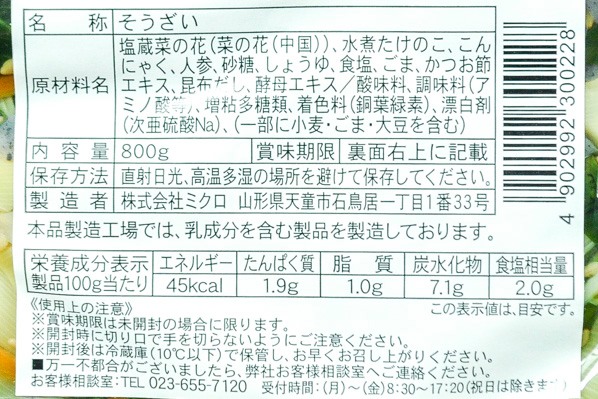 名称 そうざい
原材料名 塩蔵菜の花(菜の花(中国))、水煮たけのこ、こん
にゃく、人参、砂糖、しょうゆ、食塩、ごま、かつお節
エキス、昆布だし、酵母エキス/酸味料、調味料(ア
ミノ酸等)、増粘多糖類、着色料(銅葉緑素)、漂白剤
(次亜硫酸Na)、(一部に小麦・ごま・大豆を含む)
内容量 800g 賞味期限 裏面右上に記載
保存方法 直射日光、高温多湿の場所を避けて保存してください。
製造者 株式会社ミクロ 山形県天童市石鳥居一丁目1番33号
4 902992 300228
本品製造工場では、乳成分を含む製品を製造しております。
栄養成分表示 エネルギー たんぱく質 脂質 炭水化物 食塩相当量
製品100g当たり 45kcal 1.9g 1.0g 7.1g 2.0g
《使用上の注意》 この表示値は、目安です。
※賞味期限は未開封の場合に限ります。
※開封時に切り口で手を切らないようにご注意ください。
※開封後は冷蔵庫(10℃以下)で保管し、お早くお召し上がりください。
■万一不都合がございましたら、弊社お客様相談室へご連絡ください。
お客様相談室:TEL 023-655-7120 受付時間:(月)~(金)8:30~17:20(祝日は除きます)